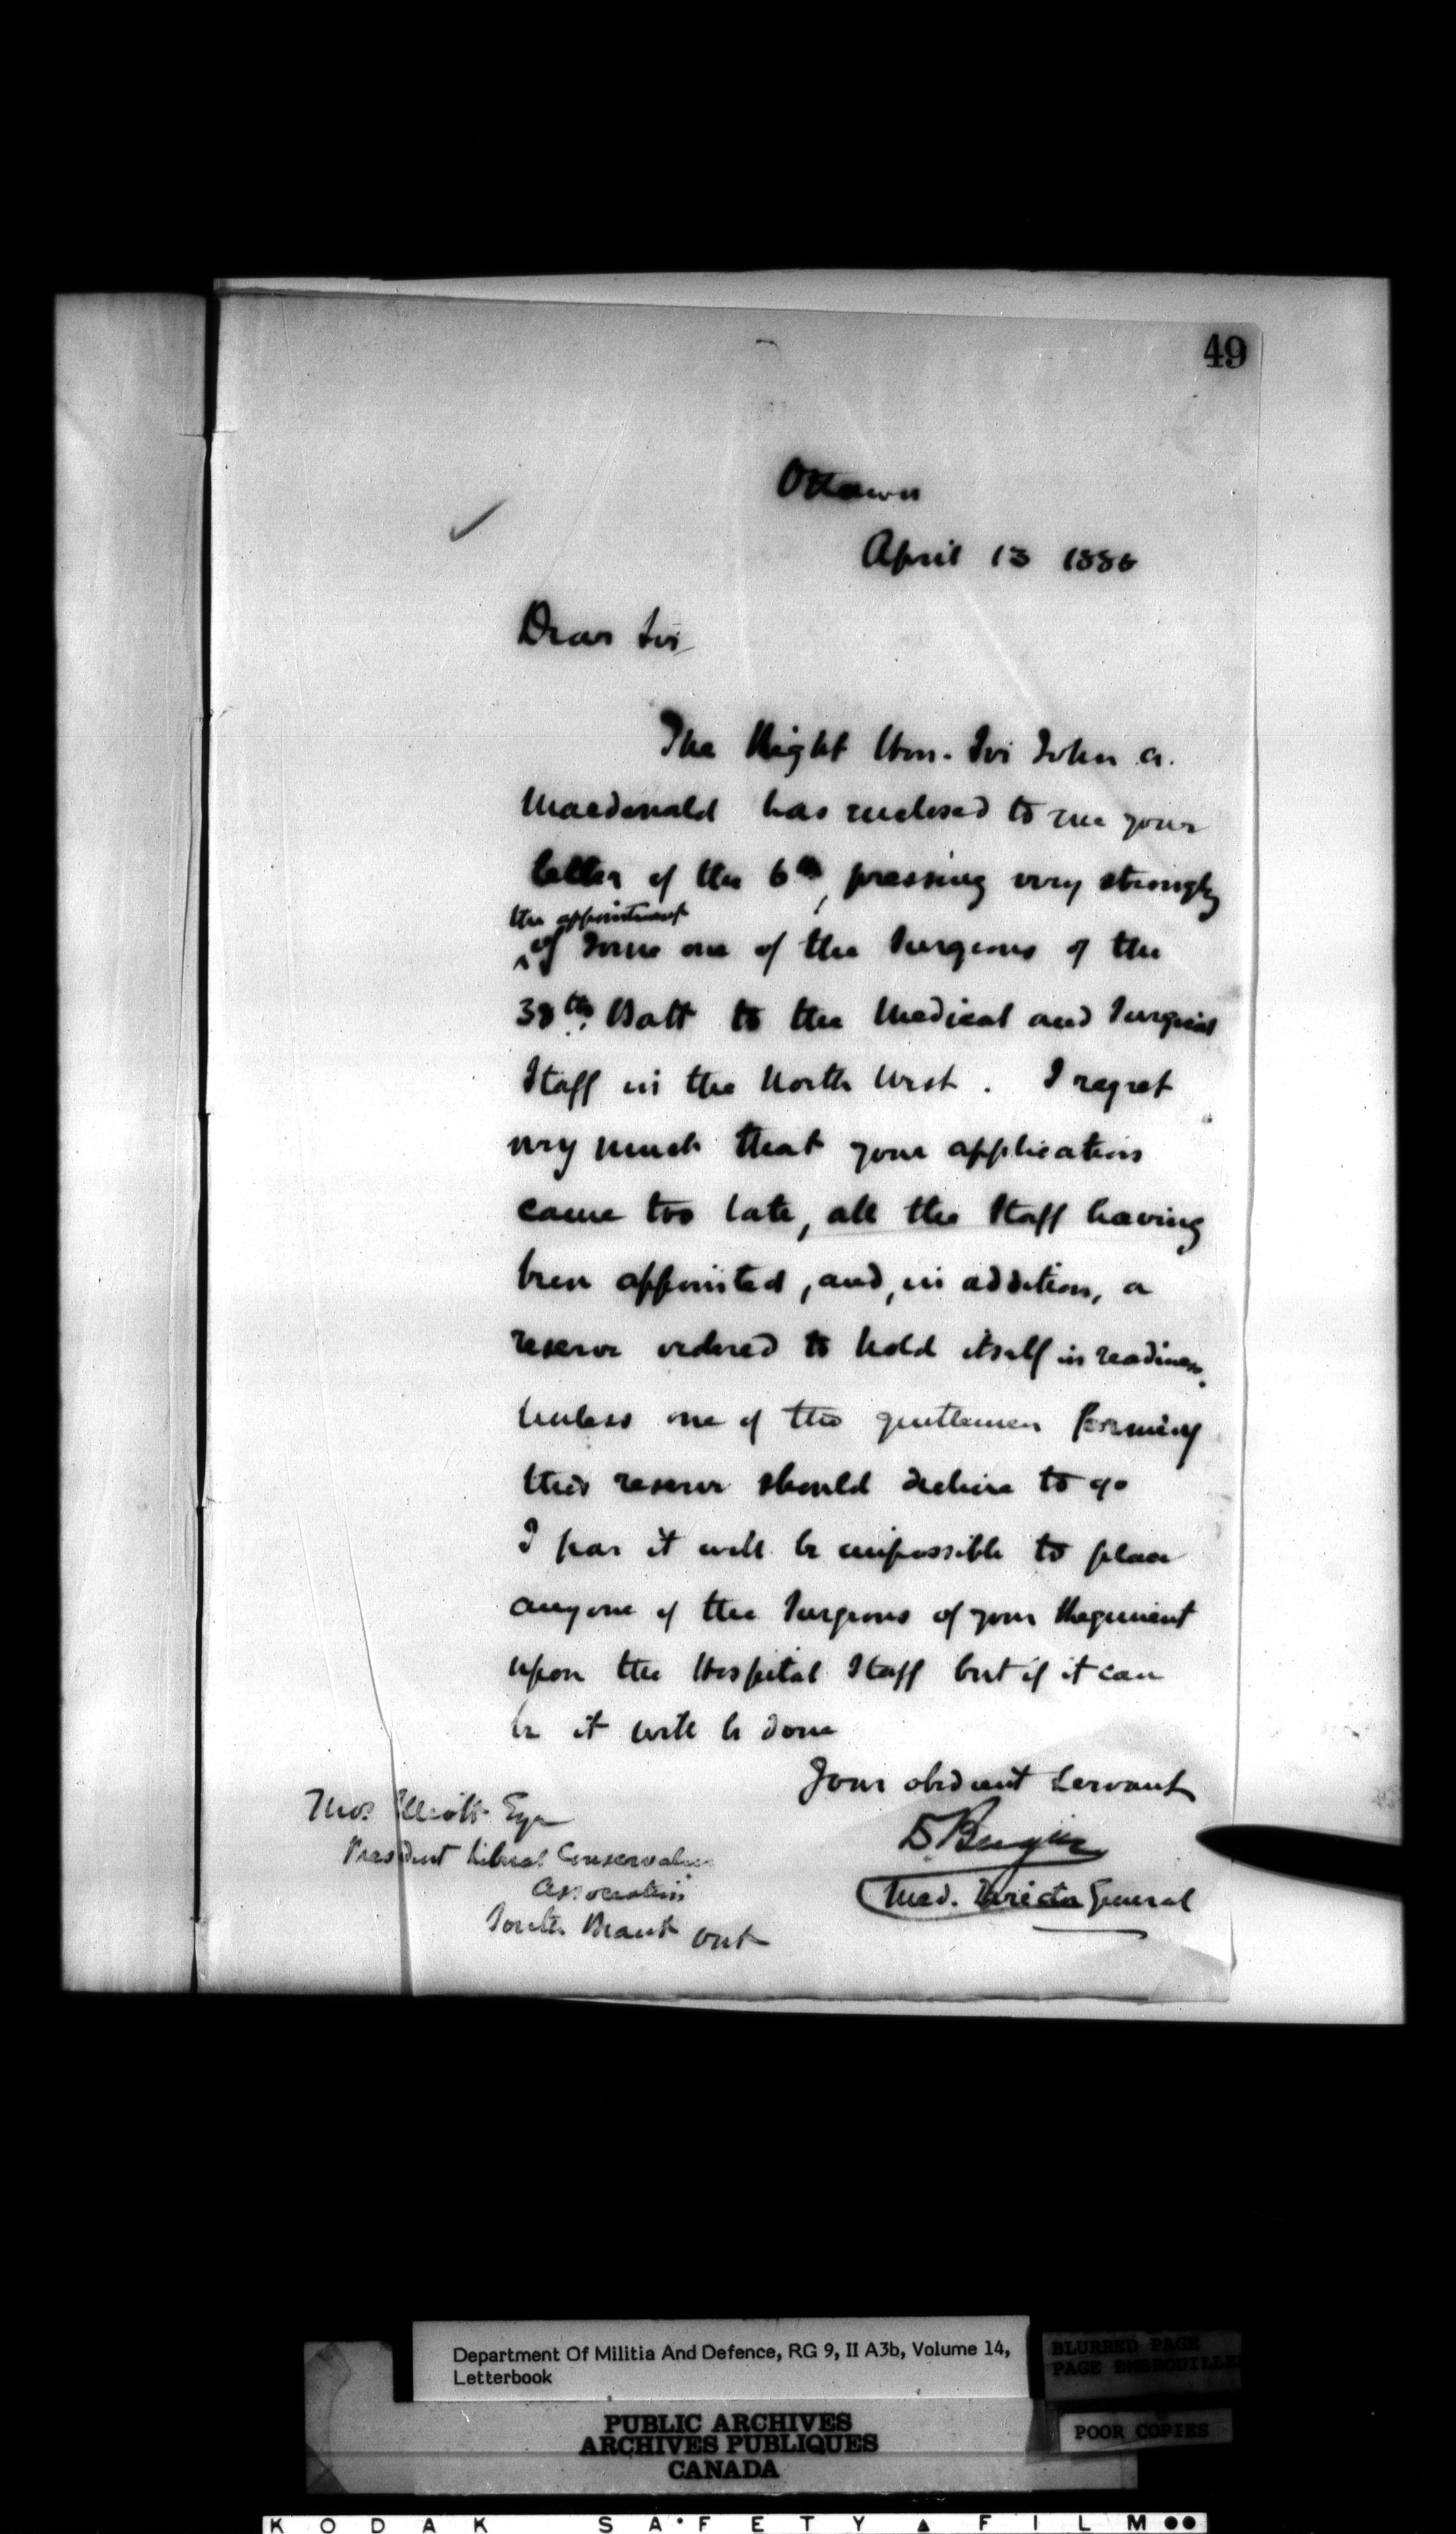 49
Ottawa
April 13 1886
Dear Sir
The Right Hon. Sir John A.
Macdonald has enclosed to me your
letter of the 6th, pressing very strongly
the appointment
of some one of the Surgeons of the
38th Batt to the Medical and Surgical
Staff in the North West. I regret
very much that your application
came too late, all the Staff having
been appointed, and, in addition, a
reserve ordered to hold itself in readiness.
Unless one of the gentlemen forming
this reserve should decline to go
I fear it will be impossible to place
anyone of the Surgeons of your Regiment
upon the Hospital Staff but if it can
be it will be done
Your obedient Servant
D Bergin
Med. Director General
Thos. Elliott Esqr
President Liberal Conservative
Association
South Brant Ont
Department Of Militia And Defence, RG 9, II A3b, Volume 14,
Letterbook
BLURRED PAGE
PAGE EMBROUILLE
POOR COPIES
PUBLIC ARCHIVES
ARCHIVES PUBLIQUES
CANADA
KODAK SAFETY FILM